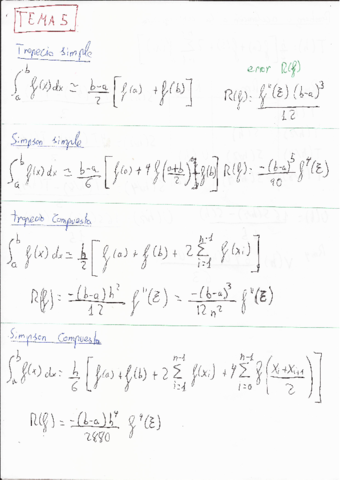 TEMA 5
Trapecio simple
∫_a^b f(x)dx ≃ (b-a)/2 [f(a) + f(b)]
error R(f)
R(f): f''(ξ)(b-a)^3 / 12
Simpson simple
∫_a^b f(x)dx ≃ (b-a)/6 [f(a) + 4f((a+b)/2) + f(b)] R(f): -(b-a)^5/90 f^4(ξ)
Trapecio Compuesto
∫_a^b f(x)dx ≃ h/2 [f(a) + f(b) + 2 ∑_{i=1}^{n-1} f(xi)]
R(f) = -(b-a)h^2/12 f''(ξ) = -(b-a)^3/12n^2 f''(ξ)
Simpson Compuesto
∫_a^b f(x)dx = h/6 [f(a) + f(b) + 2 ∑_{i=1}^{n-1} f(xi) + 4 ∑_{i=0}^{n-1} f((xi+xi+1)/2)]
R(f) = -(b-a)h^4/2880 f^4(ξ)